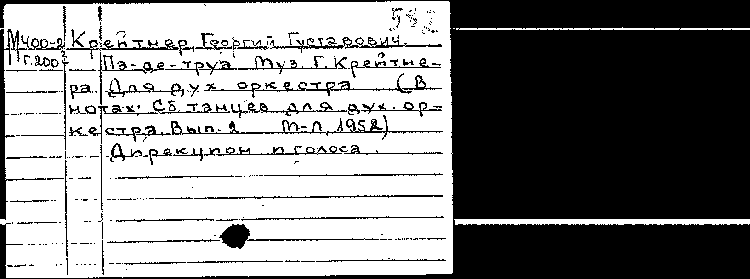 582
М400-2 Крейтнер, Георгий Густавович.
Г.200² Па-де-труа Муз. Г. Крейтне-
ра. Для дух. оркестра (В
нотах: Сб танцев для дух. ор-
кестра. Вып. 2 М-Л, 1952)
Дирекцион и голоса.